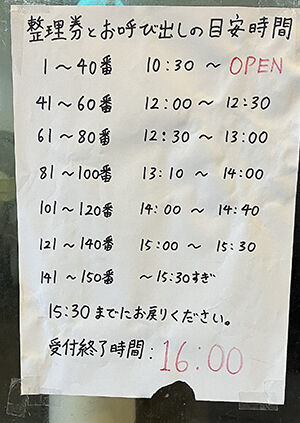 整理券とお呼び出しの目安時間
1～40番 10:30 ～ OPEN
41～60番 12:00～ 12:30
61～80番 12:30 ～ 13:00
81～100番 13:10 ～ 14:00
101～120番 14:00 ～ 14:40
121～140番 15:00 ～ 15:30
141～150番 ～15:30すぎ
15:30までにお戻りください。
受付終了時間: 16:00